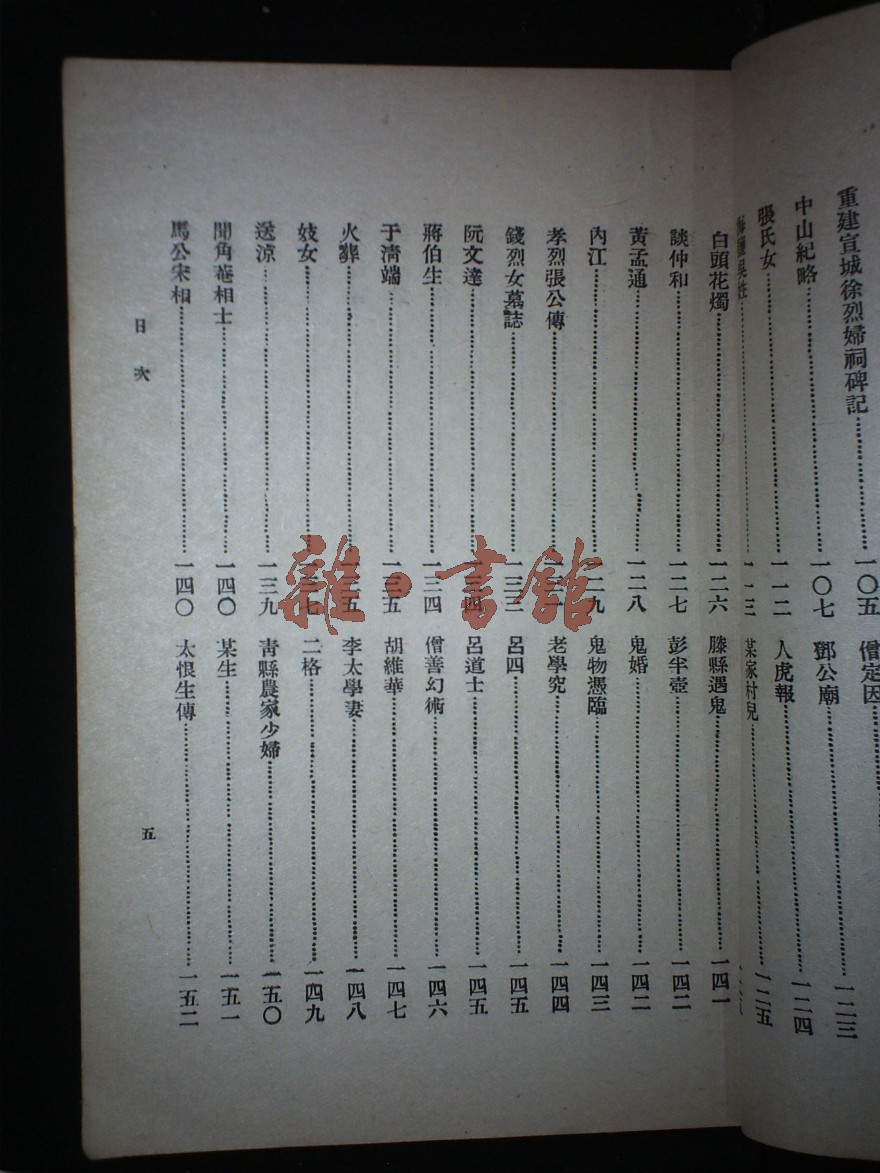 重建宣城徐烈婦祠碑記……一〇五
中山紀略……一〇七
張氏女……一一二
一一三
僧定因
鄧公廟……一二三
人虎報……一二四
某家村兒……一二五
白頭花燭……一二六
談仲和……一二七
黃孟通……一二八
內江……一二九
孝烈張公傳……一三一
錢烈女墓誌……一三三
阮文達……一三四
蔣伯生……一三四
于清端……一三五
火葬……一三五
妓女……一三七
送涼……一三九
聞角菴相士……一四〇
馬公宋相……一四〇
滕縣遇鬼……一四一
彭半壺……一四二
鬼婚……一四二
鬼物憑臨……一四三
老學究……一四四
呂四……一四五
呂道士……一四五
僧善幻術……一四六
胡維華……一四七
李太學妻……一四八
二格……一四九
青縣農家少婦……一五〇
某生……一五一
太恨生傳……一五二
目次
五
雜·書館